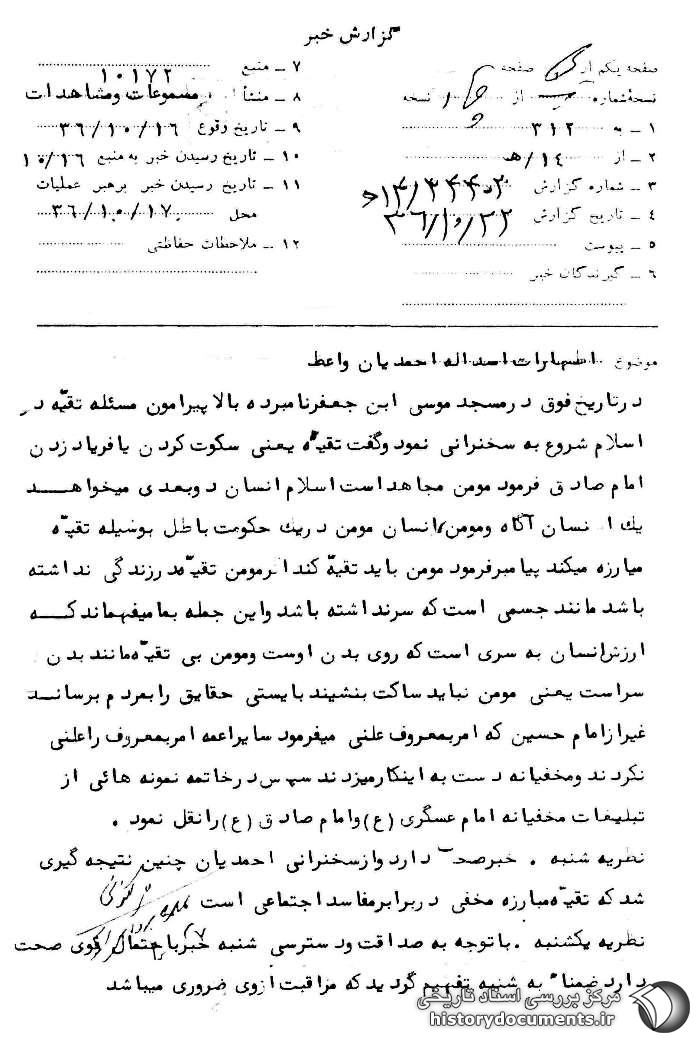 گزارش خبر
صفحه یکم از صفحه
نسخه شماره از ۱ نسخه
۱ ـ به ۳۱۲
۲ ـ از ۱۴/هـ
۳ ـ شماره گزارش
۴ ـ تاریخ گزارش ۳۶/۱۰/۲۲
۵ ـ پیوست
۶ ـ گیرندگان خبر
۷ ـ منبع ۱۰۱۷۲
۸ ـ منشأ مسموعات ومشاهدات
۹ ـ تاریخ وقوع ۳۶/۱۰/۱۶
۱۰ ـ تاریخ رسیدن خبر به منبع ۱۰/۱۶
۱۱ ـ تاریخ رسیدن خبر برهبر عملیات
محل ۳۶/۱۰/۱۷
۱۲ ـ ملاحظات حفاظتی
موضوع اظهارات اسداله احمدیان واعظ
درتاریخ فوق درمسجد موسی ابن جعفرنامبرده بالا پیرامون مسئله تقیّه در
اسلام شروع به سخنرانی نمود وگفت تقیّه یعنی سکوت کردن یا فریاد زدن
امام صادق فرمود مومن مجاهد است اسلام انسان دوبعدی میخواهـد
یك انسان آگاه ومومن انسان مومن دریك حکومت باطل بوسیله تقیّه
مبارزه میکند پیامبرفرمود مومن باید تقیّه کند اگرمومن تقیّه درزندگی نداشته
باشد مانند جسمی است که سرنداشته باشد واین جمله بمامیفهماند کـه
ارزش انسان به سری است که روی بدن اوست ومومن بی تقیّه مانند بدن
سراست یعنی مومن نباید ساکت بنشیند بایستی حقایق رابمردم برسانـد
غیرازامام حسین که امربمعروف علنی میفرمود سایرائمه امربمعروف راعلنی
نکردند ومخفیانه دست به اینکارمیزدند سپس درخاتمه نمونه هائی از
تبلیغات مخفیانه امام عسگری (ع) وامام صادق (ع) رانقل نمود .
نظریه شنبه . خبرصحت دارد وازسخنرانی احمدیان چنین نتیجه گیری
شد که تقیّه مبارزه مخفی دربرابرمفاسد اجتماعی است
نظریه یکشنبه . باتوجه به صداقت ودسترسی شنبه خبرباحتمال قوی صحت
دارد ضمنا به شنبه تفهیم گردید که مراقبت ازوی ضروری میباشد
مرکز بررسی اسناد تاریخی
historydocuments.ir